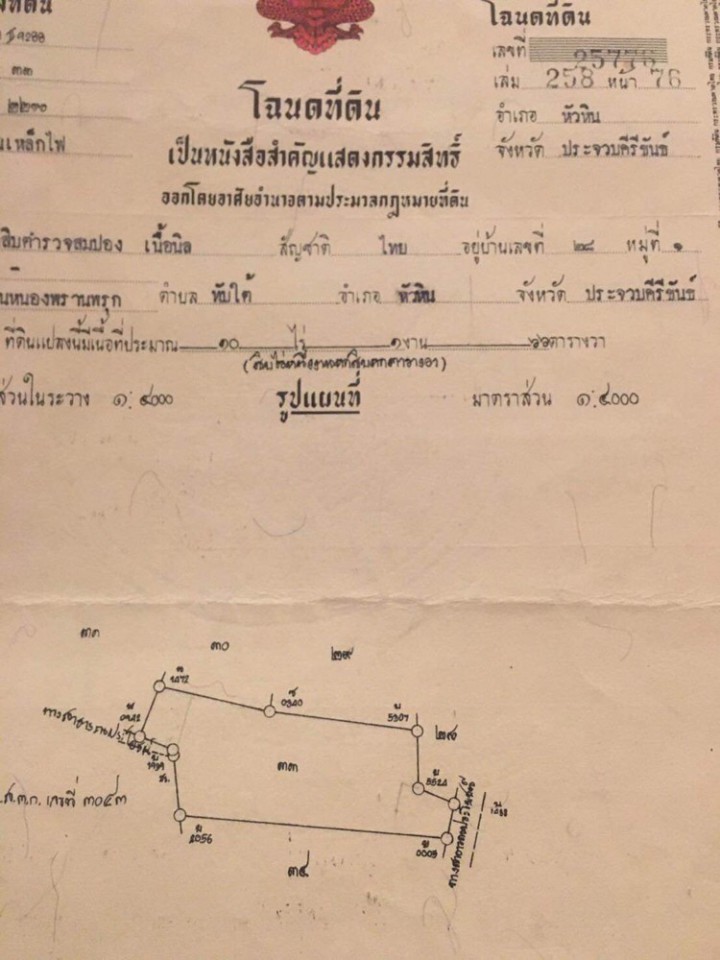 ที่ดิน
โฉนดที่ดิน
๓๓
เลขที่ 25776
๒๒๑๐
เล่ม 258 หน้า 76
เหล็กไฟ
อำเภอ หัวหิน
จังหวัด ประจวบคีรีขันธ์
โฉนดที่ดิน
เป็นหนังสือสำคัญแสดงกรรมสิทธิ์
ออกโดยอาศัยอำนาจตามประมวลกฎหมายที่ดิน
สิบตำรวจสมปอง เนื้อนิล สัญชาติ ไทย อยู่บ้านเลขที่ ๒๘ หมู่ที่ ๑
หนองพรานพรุก ตำบล ทับใต้ อำเภอ หัวหิน จังหวัด ประจวบคีรีขันธ์
ที่ดินแปลงนี้มีเนื้อที่ประมาณ ๑๐ ไร่ ๑ งาน ๖๖ ตารางวา
(สิบไร่หนึ่งงานหกสิบหกตารางวา)
ส่วนในระวาง ๑:๔๐๐๐ รูปแผนที่ มาตราส่วน ๑:๔๐๐๐
๓๑
๓๐
๒๙
๒๙
๓๓
ส.ค.ก. เลขที่ ๓๐๕๓
ทางสาธารณประโยชน์
๓๔